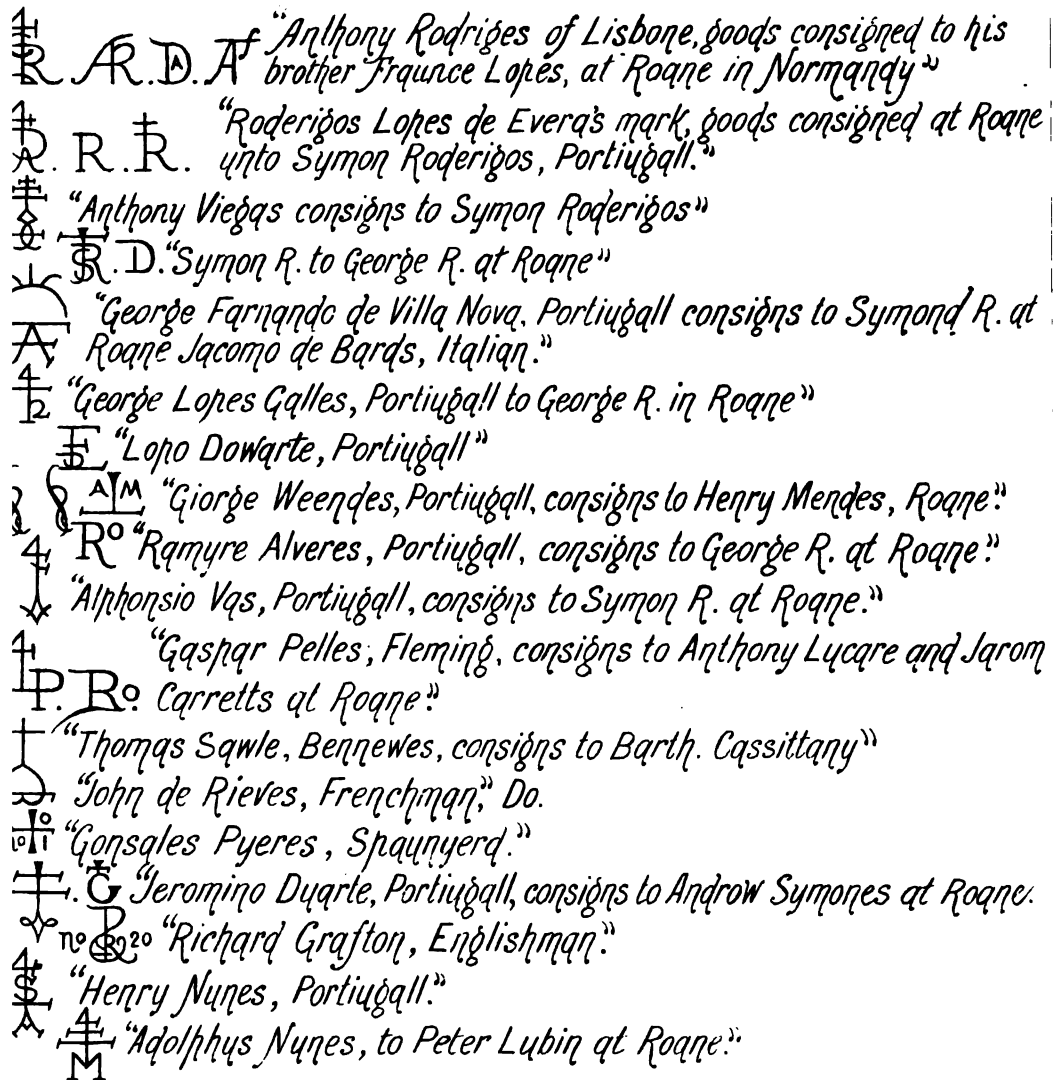 R AR.D.Af "Anthony Rodriges of Lisbone, goods consigned to his
brother Fraunce Lopes, at Roane in Normandy"
R. R. R. "Roderigos Lopes de Evera's mark, goods consigned at Roane
unto Symon Roderigos, Portiugall."
"Anthony Viegas consigns to Symon Roderigos"
R.D. "Symon R. to George R. at Roane"
"George Farnando de Villa Nova. Portiugall consigns to Symond R. at
A Roane Jacomo de Bards, Italian."
"George Lopes Galles, Portiugall to George R. in Roane"
"Lopo Dowarte, Portiugall"
A M "Giorge Weendes, Portiugall, consigns to Henry Mendes, Roane."
Ro "Ramyre Alveres, Portiugall, consigns to George R. at Roane."
"Alphonsio Vas, Portiugall, consigns to Symon R. at Roane."
"Gaspar Pelles, Fleming, consigns to Anthony Lucare and Jarom
P. Ro. Carretts at Roane."
"Thomas Sawle, Bennewes, consigns to Barth. Cassittany"
"John de Rieves, Frenchman," Do.
"Gonsales Pyeres, Spaunyerd."
G "Jeromino Duarte, Portiugall, consigns to Androw Symones at Roane.
no R 20 "Richard Grafton, Englishman."
"Henry Nunes, Portiugall."
M "Adolphus Nunes, to Peter Lubin at Roane."